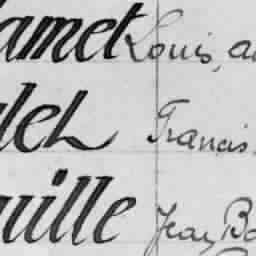 amet Louis, a
let Francis
uille Jean, Ba